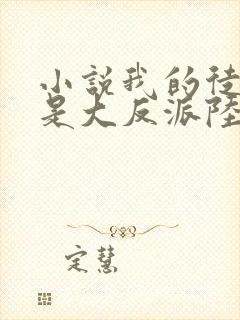 小說我的徒
是大反派陸
定慧